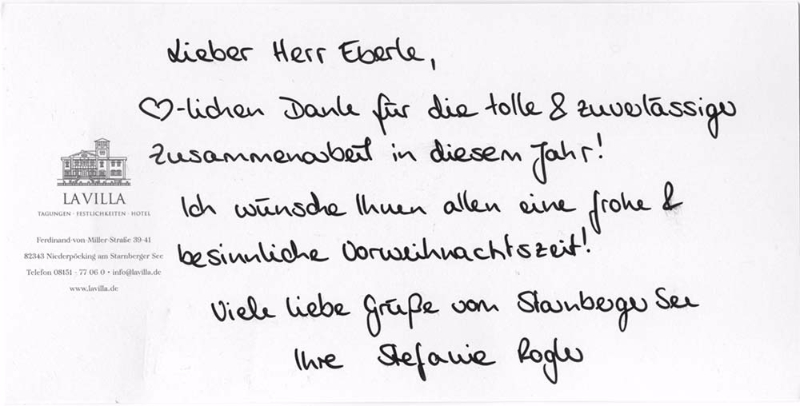 Lieber Herr Eberle,
♡-lichen Dank für die tolle & zuverlässige
Zusammenarbeit in diesem Jahr!
Ich wünsche Ihnen allen eine frohe &
besinnliche Vorweihnachtszeit!
Viele liebe Grüße vom Starnberger See
Ihre Stefanie Rogler
LA VILLA
TAGUNGEN · FESTLICHKEITEN · HOTEL
Ferdinand-von-Miller-Straße 39-41
82343 Niederpöcking am Starnberger See
Telefon 08151 - 77 06 0 • info@lavilla.de
www.lavilla.de